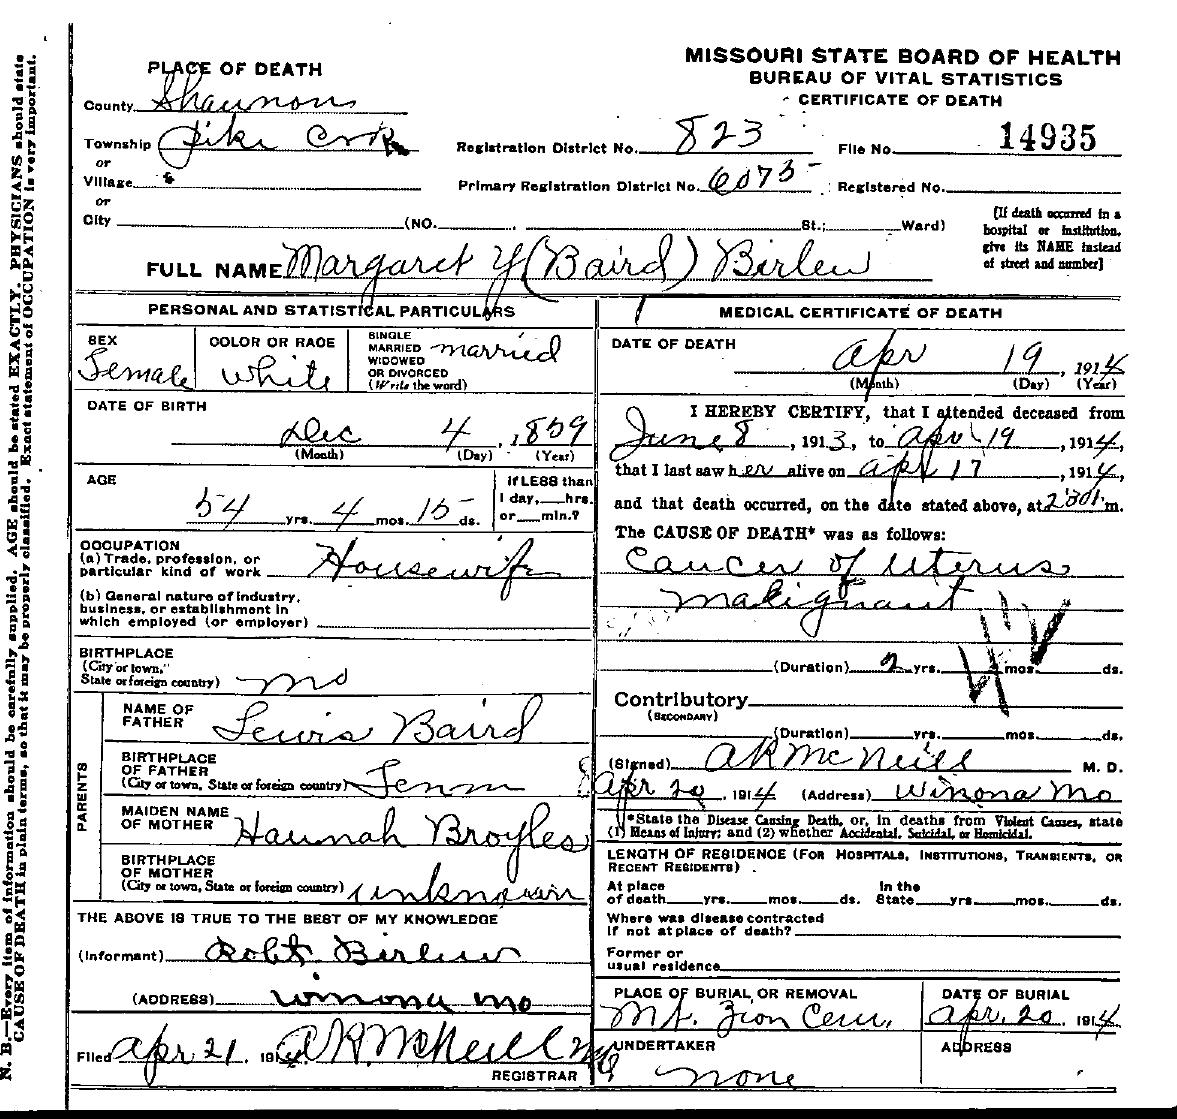 MISSOURI STATE BOARD OF HEALTH
BUREAU OF VITAL STATISTICS
CERTIFICATE OF DEATH
PLACE OF DEATH
County Shannon
Township Pike Crk
or
Village
or
City (NO. St.; Ward)
Registration District No. 823 File No. 14935
Primary Registration District No. 6075 Registered No.
[If death occurred in a
hospital or institution,
give its NAME instead
of street and number]
FULL NAME Margaret Y (Baird) Birlew
PERSONAL AND STATISTICAL PARTICULARS
SEX
Female
COLOR OR RACE
White
SINGLE
MARRIED married
WIDOWED
OR DIVORCED
(Write the word)
DATE OF BIRTH
Dec 4, 1859
(Month) (Day) (Year)
AGE
54 yrs. 4 mos. 15 ds.
If LESS than
1 day, hrs.
or min.?
OCCUPATION
(a) Trade, profession, or
particular kind of work Housewife
(b) General nature of industry,
business, or establishment in
which employed (or employer)
BIRTHPLACE
(City or town,
State or foreign country) Mo
PARENTS
NAME OF
FATHER Lewis Baird
BIRTHPLACE
OF FATHER
(City or town, State or foreign country) Tenn
MAIDEN NAME
OF MOTHER Hannah Broyles
BIRTHPLACE
OF MOTHER
(City or town, State or foreign country) unknown
THE ABOVE IS TRUE TO THE BEST OF MY KNOWLEDGE
(Informant) Robt Birlew
(ADDRESS) Winona Mo
Filed Apr 21, 1914 A R McNeill
REGISTRAR
MEDICAL CERTIFICATE OF DEATH
DATE OF DEATH
Apr 19, 1914
(Month) (Day) (Year)
I HEREBY CERTIFY, that I attended deceased from
June 8, 1913, to Apr 19, 1914,
that I last saw her alive on Apr 17, 1914,
and that death occurred, on the date stated above, at m.
The CAUSE OF DEATH* was as follows:
Cancer of Uterus
Malignant
(Duration) 2 yrs. mos. ds.
Contributory
(SECONDARY)
(Duration) yrs. mos. ds.
(Signed) A R McNeill M. D.
Apr 20, 1914 (Address) Winona Mo
*State the Disease Causing Death, or, in deaths from Violent Causes, state
(1) Means of Injury; and (2) whether Accidental, Suicidal, or Homicidal.
LENGTH OF RESIDENCE (FOR HOSPITALS, INSTITUTIONS, TRANSIENTS, OR
RECENT RESIDENTS)
At place
of death yrs. mos. ds.
In the
State yrs. mos. ds.
Where was disease contracted
if not at place of death?
Former or
usual residence
PLACE OF BURIAL OR REMOVAL
Mt. Zion Cem.
DATE OF BURIAL
Apr. 20 1914
UNDERTAKER
none
ADDRESS
N. B.—Every item of information should be carefully supplied. AGE should be stated EXACTLY. PHYSICIANS should state
CAUSE OF DEATH in plain terms, so that it may be properly classified. Exact statement of OCCUPATION is very important.